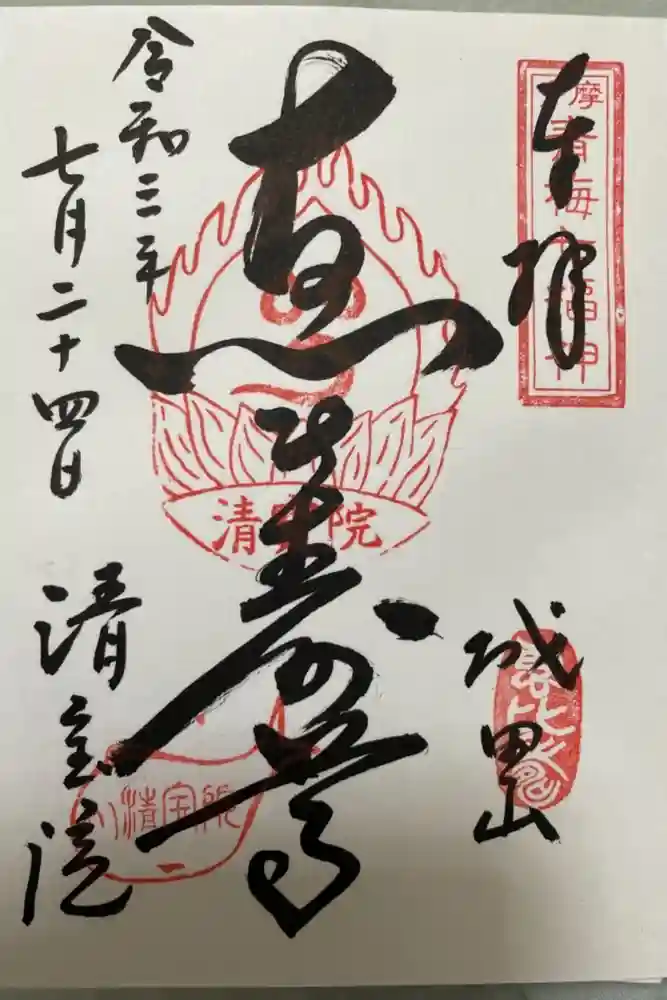 奉拝
摩青梅七福神
恵比壽尊
清宝院
城田山
令和三年
七月二十四日
清宝院
清宝院